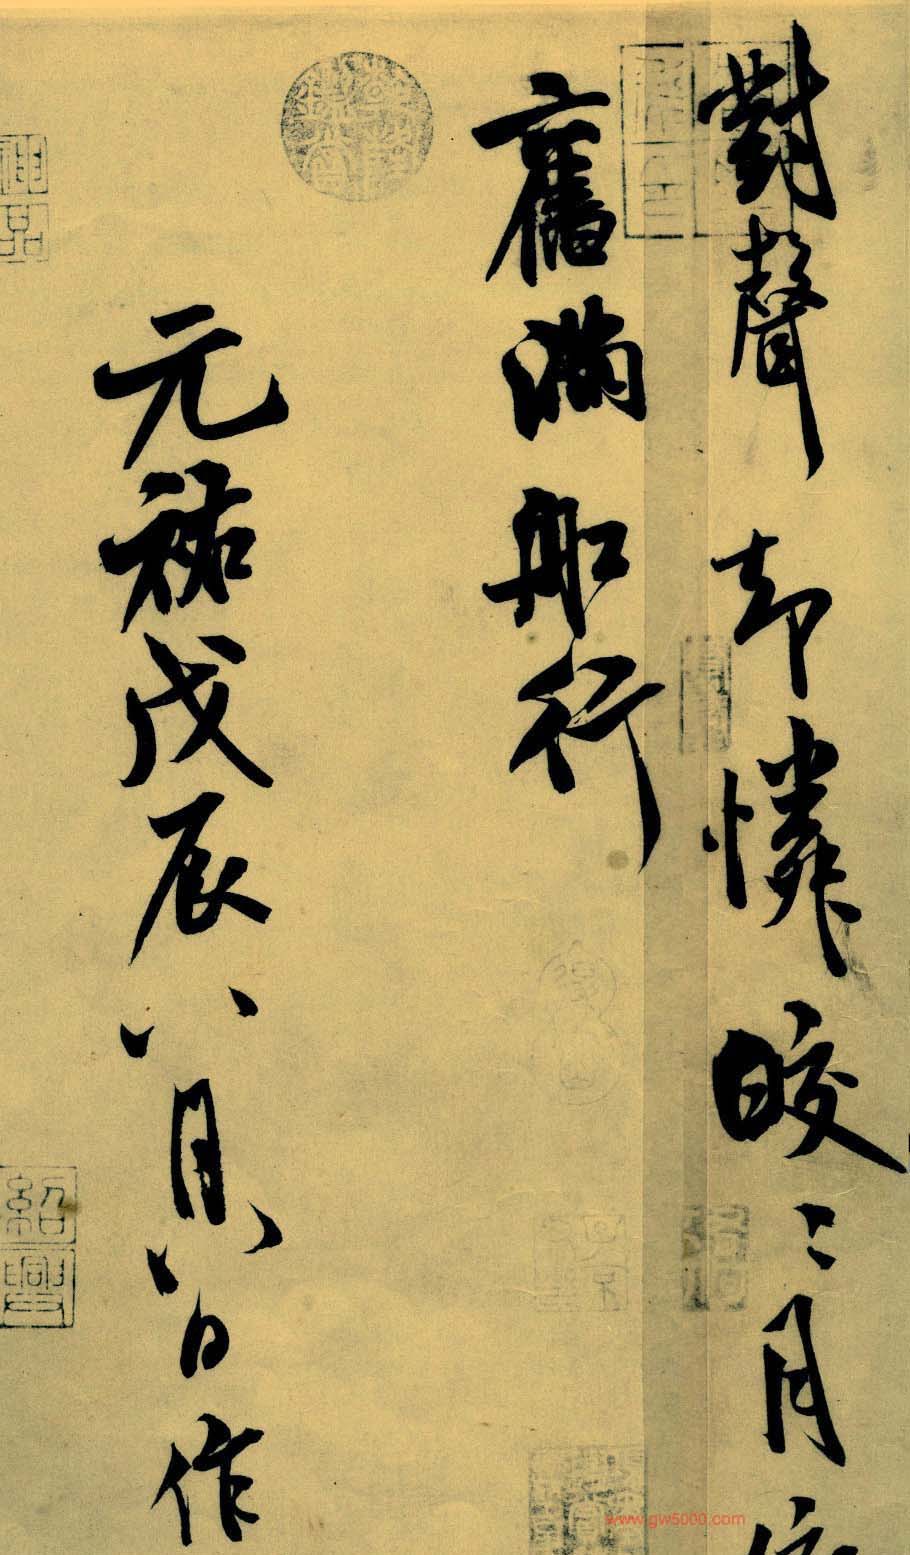 對聲却憐皎〻月依
舊滿舡行
元祐戊辰八月八日作
紹興
www.gw5000.com